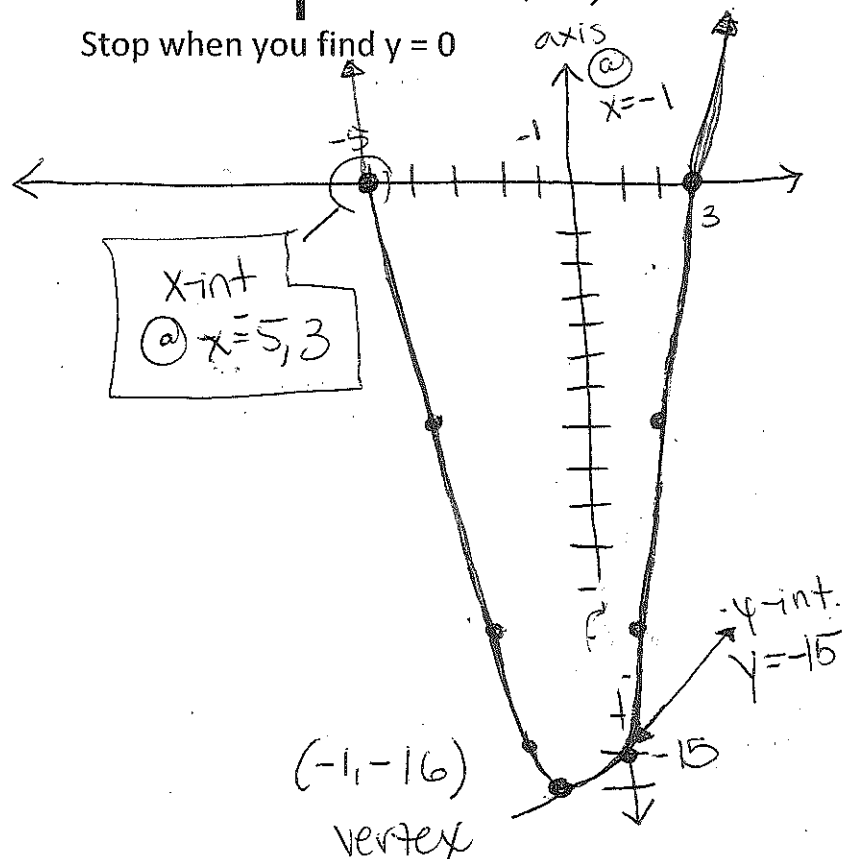 Stop when you find y = 0
axis
@
x=-1
-5
-1
3
x-int
@ x=-5,3
y-int.
y=-15
-15
(-1,-16)
vertex